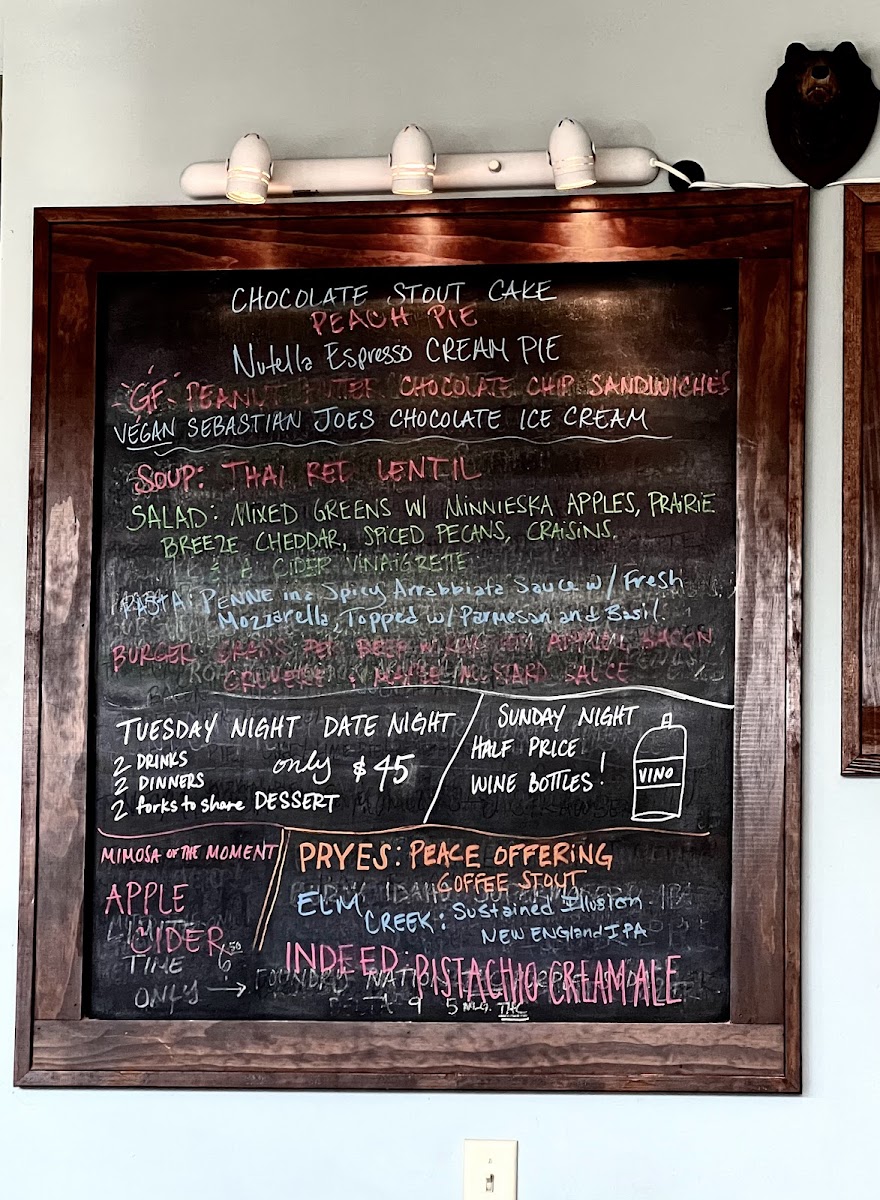 CHOCOLATE STOUT CAKE
PEACH PIE
Nutella Espresso CREAM PIE
GF PEANUT BUTTER CHOCOLATE CHIP SANDWICHES
VEGAN SEBASTIAN JOES CHOCOLATE ICE CREAM
SOUP: THAI RED LENTIL
SALAD: MIXED GREENS W/ MINNIESKA APPLES, PRAIRIE
BREEZE CHEDDAR, SPICED PECANS, CRAISINS.
& A CIDER VINAIGRETTE
PASTA: PENNE in a Spicy Arrabbiata Sauce w/ Fresh
Mozzarella, Topped w/ Parmesan and Basil.
BURGER: GRASS FED BEEF W/ BACON
GRUYERE & MUSTARD SAUCE
TUESDAY NIGHT DATE NIGHT
2 DRINKS
2 DINNERS
2 forks to share DESSERT
only $45
SUNDAY NIGHT
HALF PRICE
WINE BOTTLES!
VINO
MIMOSA OF THE MOMENT
APPLE
CIDER
6.50
TIME
ONLY →
PRYES: PEACE OFFERING
COFFEE STOUT
ELM CREEK: Sustained Illusion
NEW ENGlandIPA
INDEED: PISTACHIO CREAM ALE
5 MLG. THC